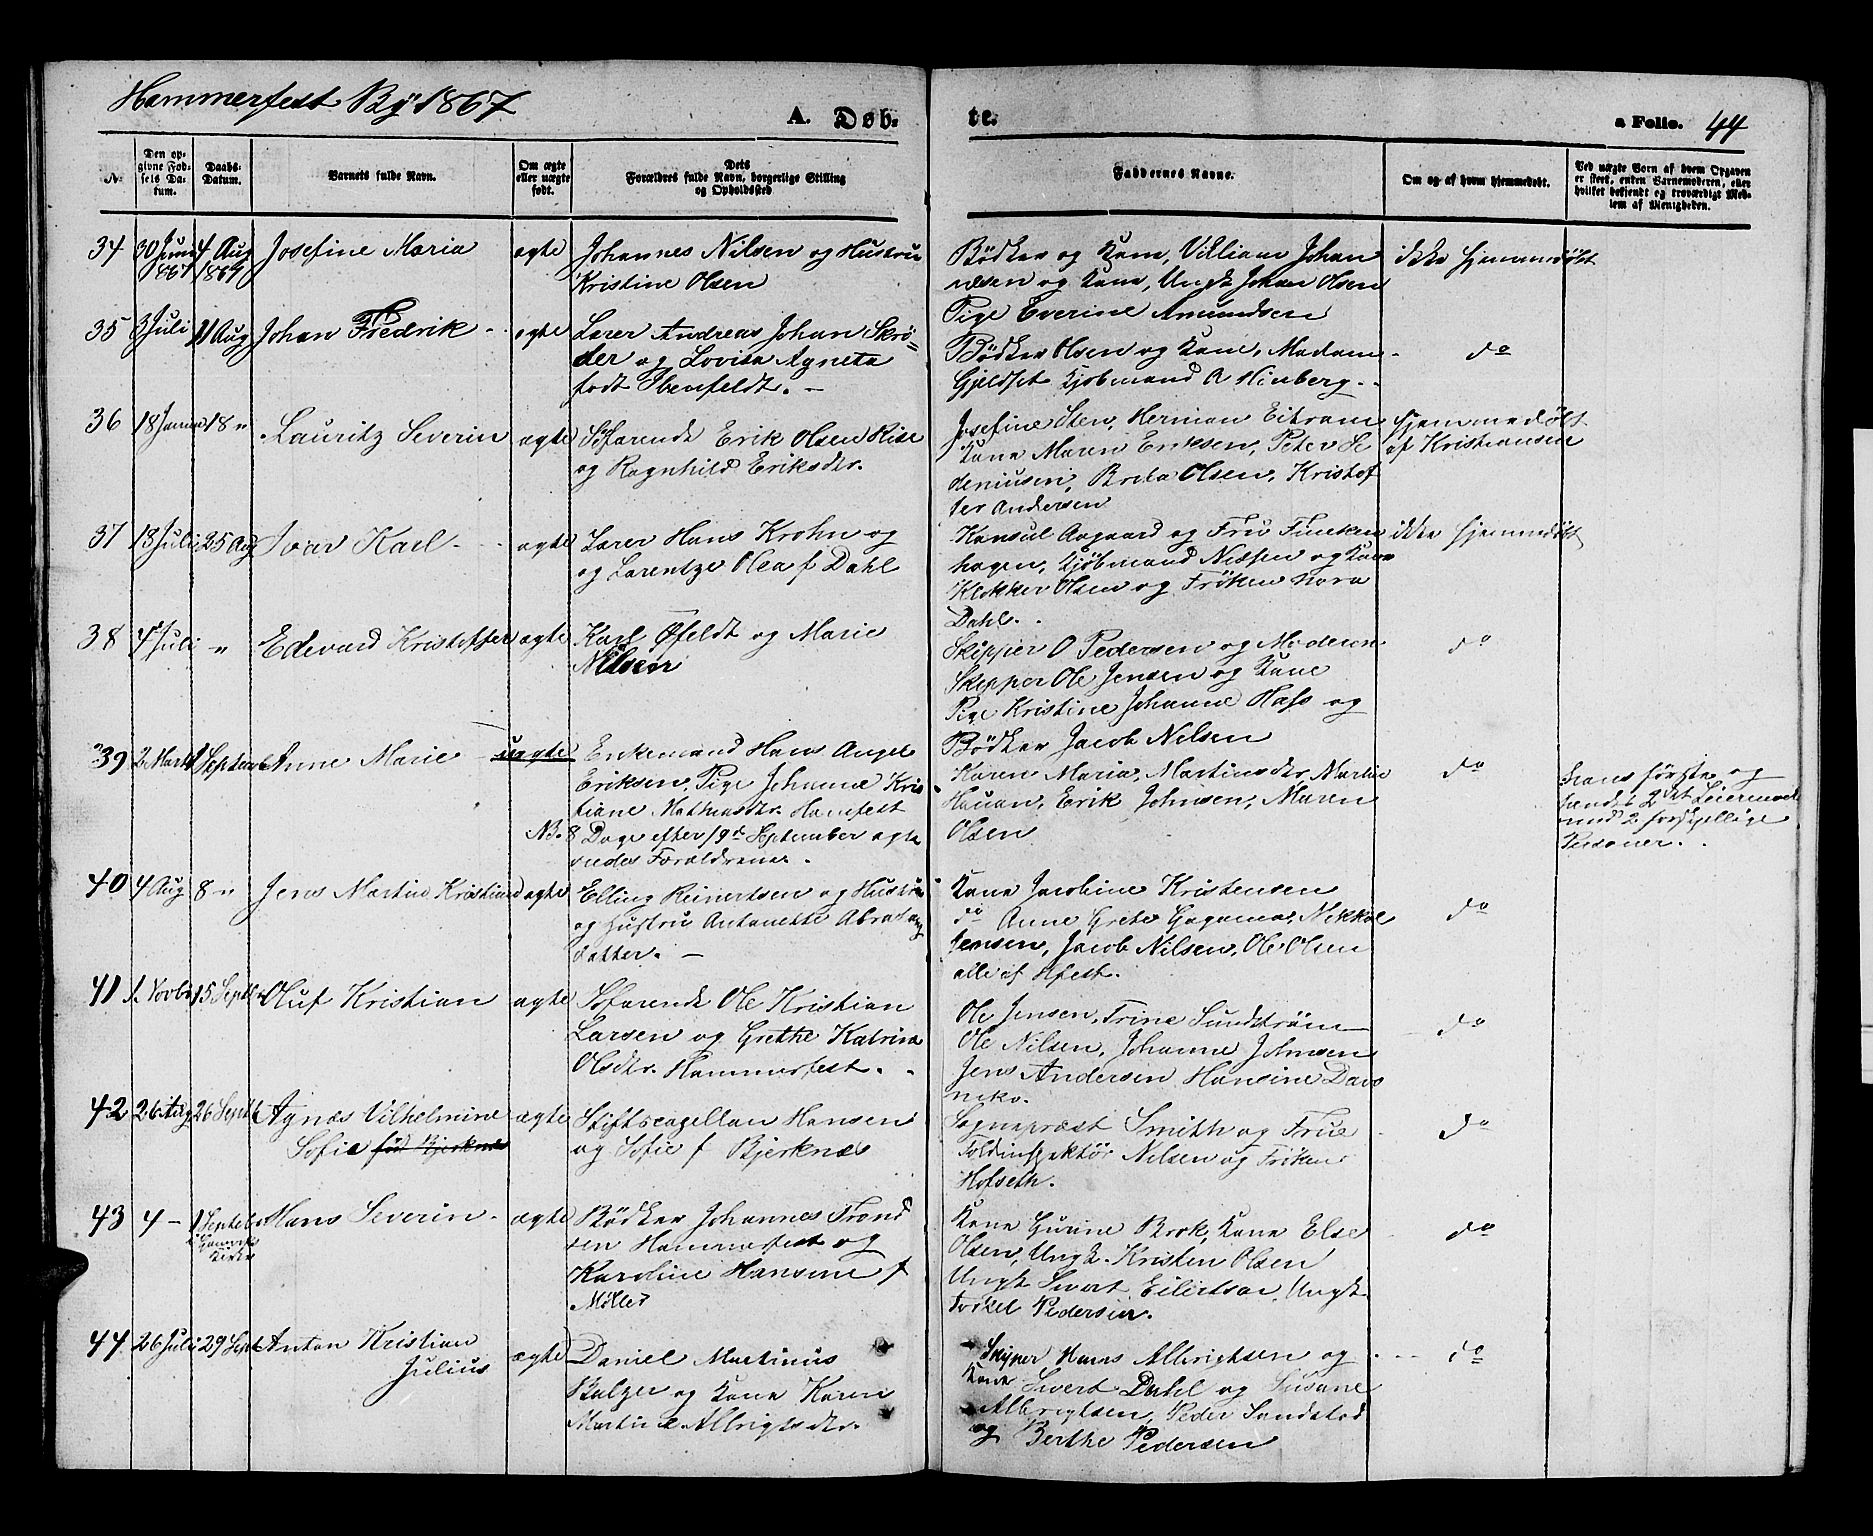 Hammerfest By 1867
A. Døb-
te.
a Folio. 44
N.
Den op-
givne Fød-
sels Da-
tum.
Daabs-
Datum.
Barnets fulde Navn.
Om ægte
eller uægte
født.
Dets
Forældres fulde Navn, borgerlige Stilling
og Opholdssted
Faddernes Navne.
Om og af hvem hjemmedøbt.
Ved uægte Born af hvem Opgaven
er skeet, enten Barnemoderen, eller
hvilket bekjendt og troværdigt Med-
lem af Menigheden.
34 30 Juni 1867 4 Aug 1867 Josefine Maria ægte Johannes Nilsen og Hustru
Kristine Olsen
Bødker og Kone, Villiam Johan
nesen og Kone, Ungk Johan Olsen
Pige Everine Amundsen
ikke hjemmedøbt
35 3 Juli 11 Aug Johan Fredrik - ægte Lærer Andreas Johan Skrö=
der og Lovisa Agneta
født Ibenfeldt. -
Bödker Olsen og Kone, Madam
Gjeldset Kjøbmand A Hinberg - -
do
36 18 Januar 18 " Lauritz Severin ægte Søfarende Erik Olsen Riise
og Ragnhild Eriksdtr.
Josefine Sten, Herman Eitram
Kone Maren Eriksen, Peter Se
deniusen, Brita Olsen, Kristof
fer Andersen
hjemmedøbt
af Kristiansen
37 18 Juli 25 Aug Ivar Karl - - ægte Lærer Hans Krohn og
og Larentze Olea f Dahl
Konsul Aagaard og Fru Funken
hagen, Kjøbmand Nissen og Kone
Klokker Olsen og Frøken Nora
Dahl. .
ikke hjemmedøbt
38 4 Juli " Edevard Kristoffer ægte Karl Øfeldt og Marie
Nilsen
Skipper O Pedersen og Moderen
Skipper Ole Jensen og Kone
Pige Kristine Johanne Hass og
Bödker Jacob Nelsen
do
39 2 Marts 1 Septem Anne Marie - uægte Enkemand Hans Angel
Eriksen, Pige Johanna Kris
tiane Mathiasdtr. Hamfest
NB. 8 Dage efter 19de September ægte
viedes Forældrene .
Karen Maria Martinsdtr, Martin
Hauan, Erik Johnsen, Maren
Olsen
do
hans første og
hendes 2det Leiermaal
med 2 forskjellige
Personer. .
40 4 Aug 8 " Jens Martin Kristian ægte Elling Reinertsen og Hustru
og Hustru Antonette
datter. -
Kone Jacobine Kristensen
do Anne Grete Gagama, Nikkol
Jensen, Jacob Nilsen, Ole Olsen
alle af Hfest.
do
41 1. Novbr 15 Septbr Oluf Kristian ægte Søfarende Ole Kristian
Larsen og Grethe Katrina
Olsdtr. Hammerfest. .
Ole Jensen, Trine Sundström
Ole Nilsen, Johanne Johnsen
Jens Andersen Hansine Davo
neko.
do
42 26 Aug 26 Septb Agnæs Vilhelmine
Sofie fød Bjerknes
ægte Stiftscapellan Hansen
og Sofie f Bjerknæs
Sognepræst Smith og Frue
Toldinspektör Nilsen og Fröken
Holseth.
do
43 4 - 1 Septbr Hans Severin - ægte Bödker Johannes Trond
Kirke
sen Hammerfest og
Karoline Hansine f
Møller
Kone Gurine Brok, Kone Else
Olsen, Ungk. Kristen Olsen
Ungk Sivert Eilertsen, Ungk
Torkel Pedersen.
do
44 26 Juli 29 Sept Anton Kristian
Julius
ægte Daniel Martinus
Balzer og Kone Karen
Martine Albrigtsdtr.
Skiper Hans Albrigtsen og
Kone Sivert Dahl og Susane
Albrigtsen, Peder Sandstad
og Berthe Pedersen
do